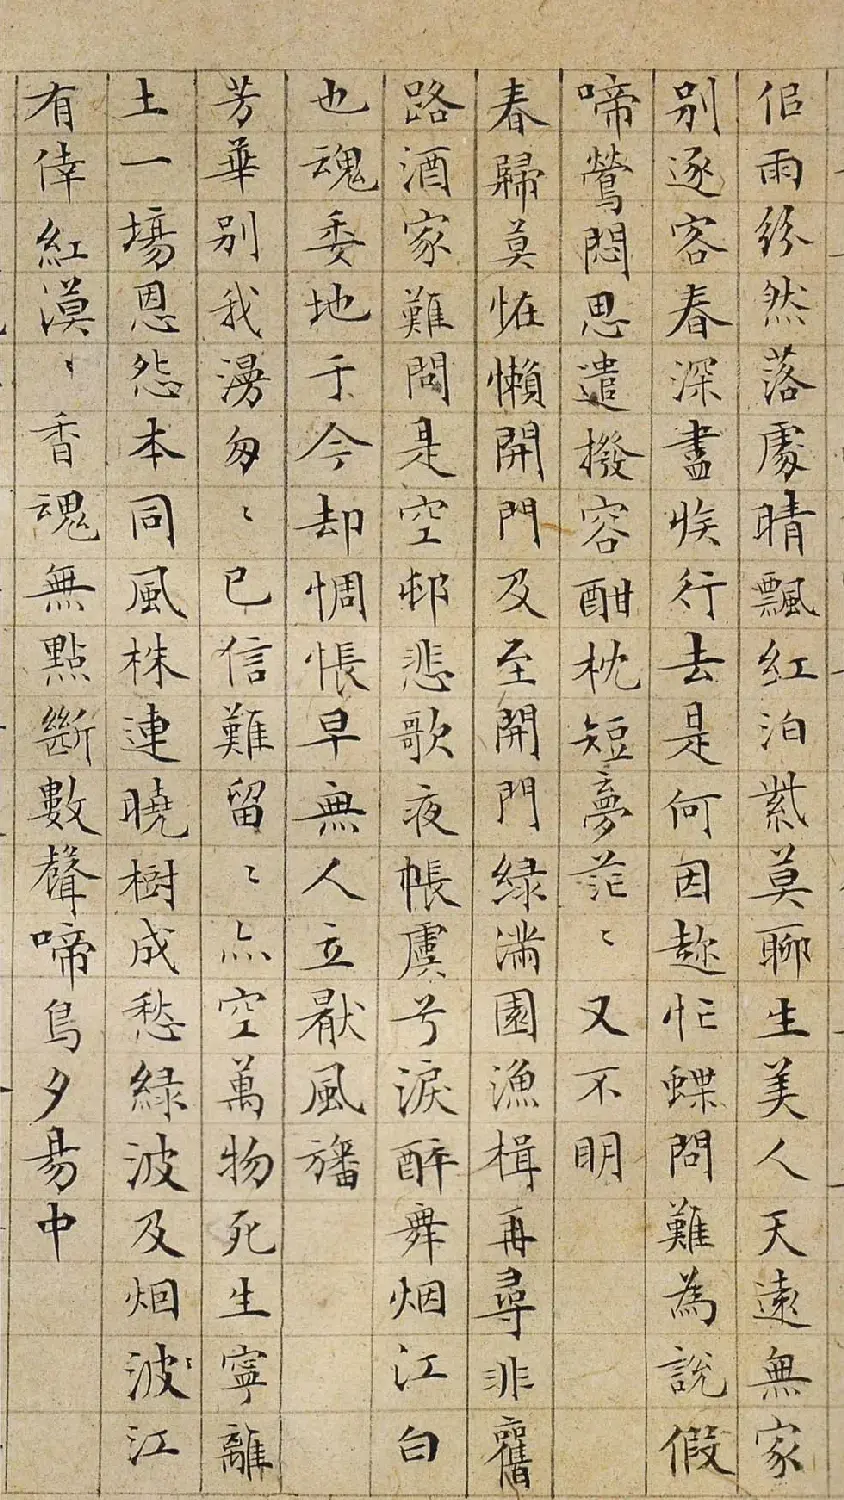 佀雨紛然落處晴飄紅泊紫莫聊生美人天遠無家
別逐客春深盡族行去是何因趂忙蝶問難為說假
啼鶯悶思遣撥容酣枕短夢茫〻又不明
春歸莫恠懶開門及至開門緑滿園漁楫再尋非舊
路酒家難問是空邨悲歌夜帳虞兮淚醉舞烟江白
也魂委地于今却惆悵早無人立厭風旛
芳華別我漫匆〻已信難留〻亦空萬物死生寧離
土一場恩怨本同風株連曉樹成愁緑波及烟波江
有倖紅漠〻香魂無點斷數聲啼鳥夕昜中